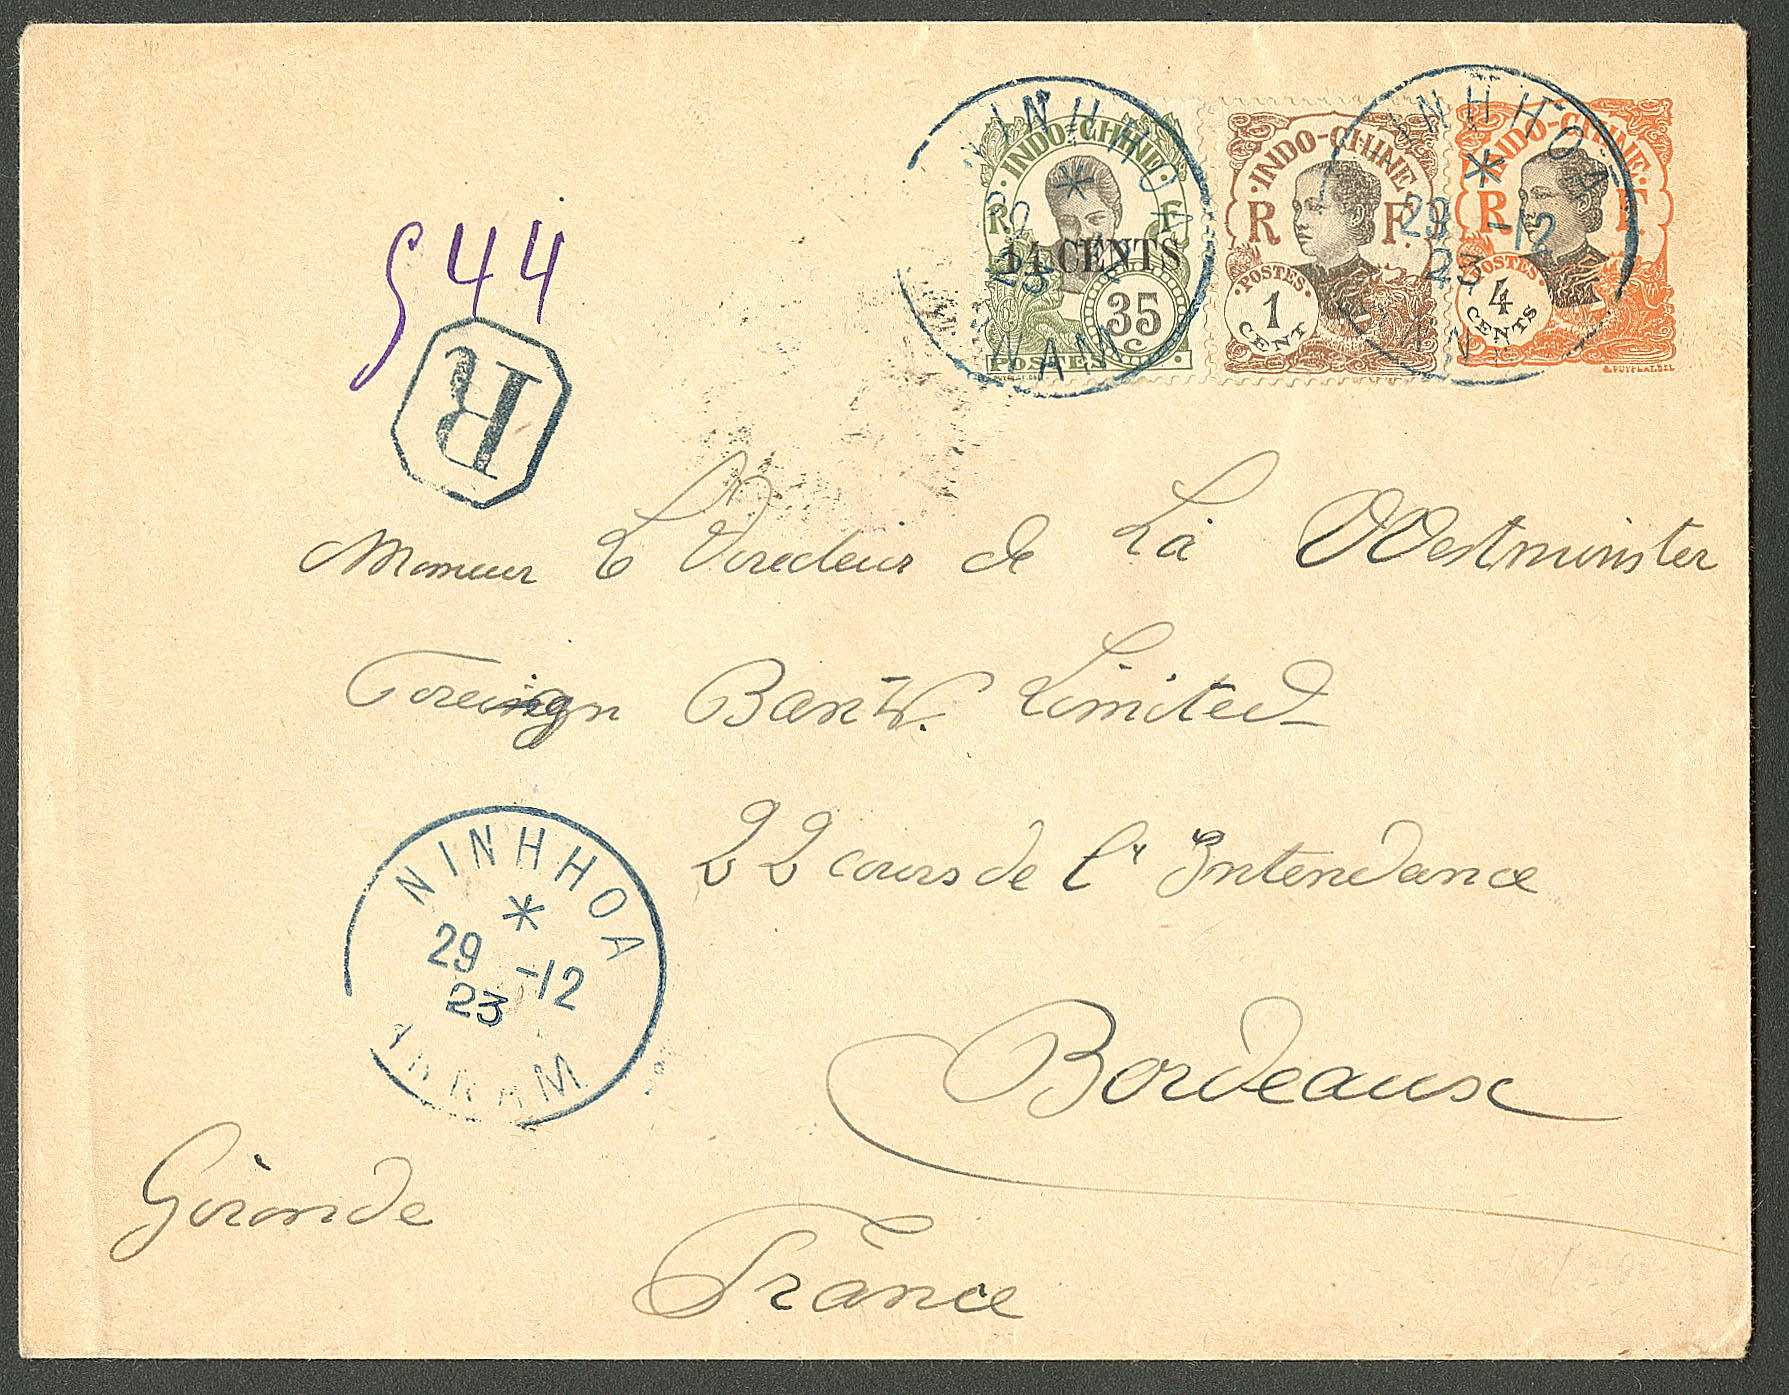 NINHHOA
*
29 -12
23
ANNAM
INDO-CHINE
R F
14 CENTS
35
c.
POSTES
INDO-CHINE
R F
POSTES
1
CENT
NINHHOA
*
29 -12
23
ANNAM
INDO-CHINE
R F
POSTES
4
CENTS
A.PUYPLAT.DEL
944
R
Monsieur Le Directeur de La Westminster
Foreingn Bank. Limited
22 cours de l'Intendance
NINHHOA
*
29 -12
23
ANNAM
Bordeaux
Gironde
France